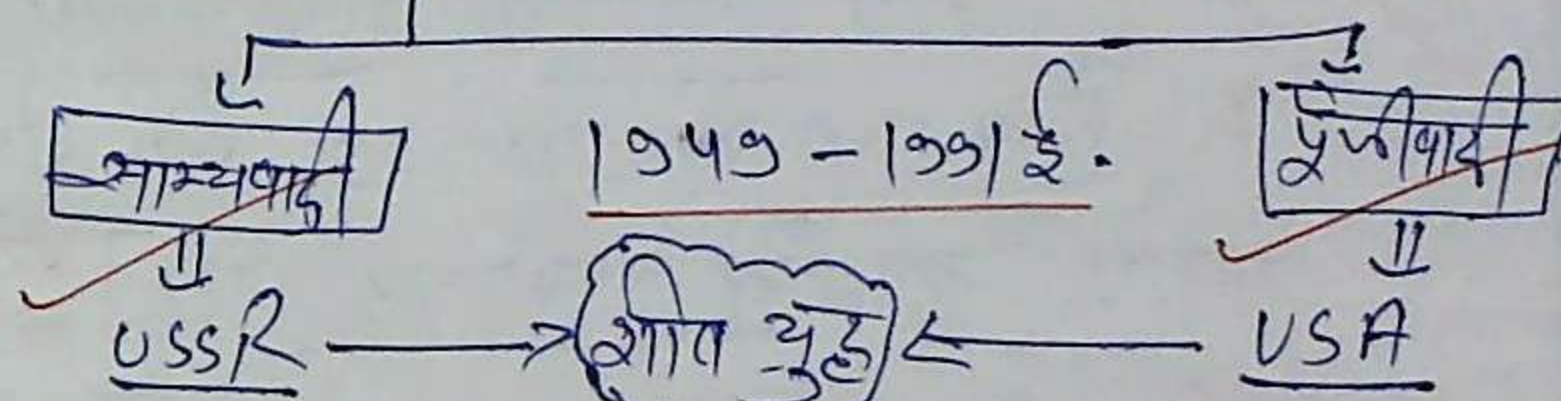 साम्यवादी 1949 - 1991 ई. पूँजीवादी
USSR शीत युद्ध USA